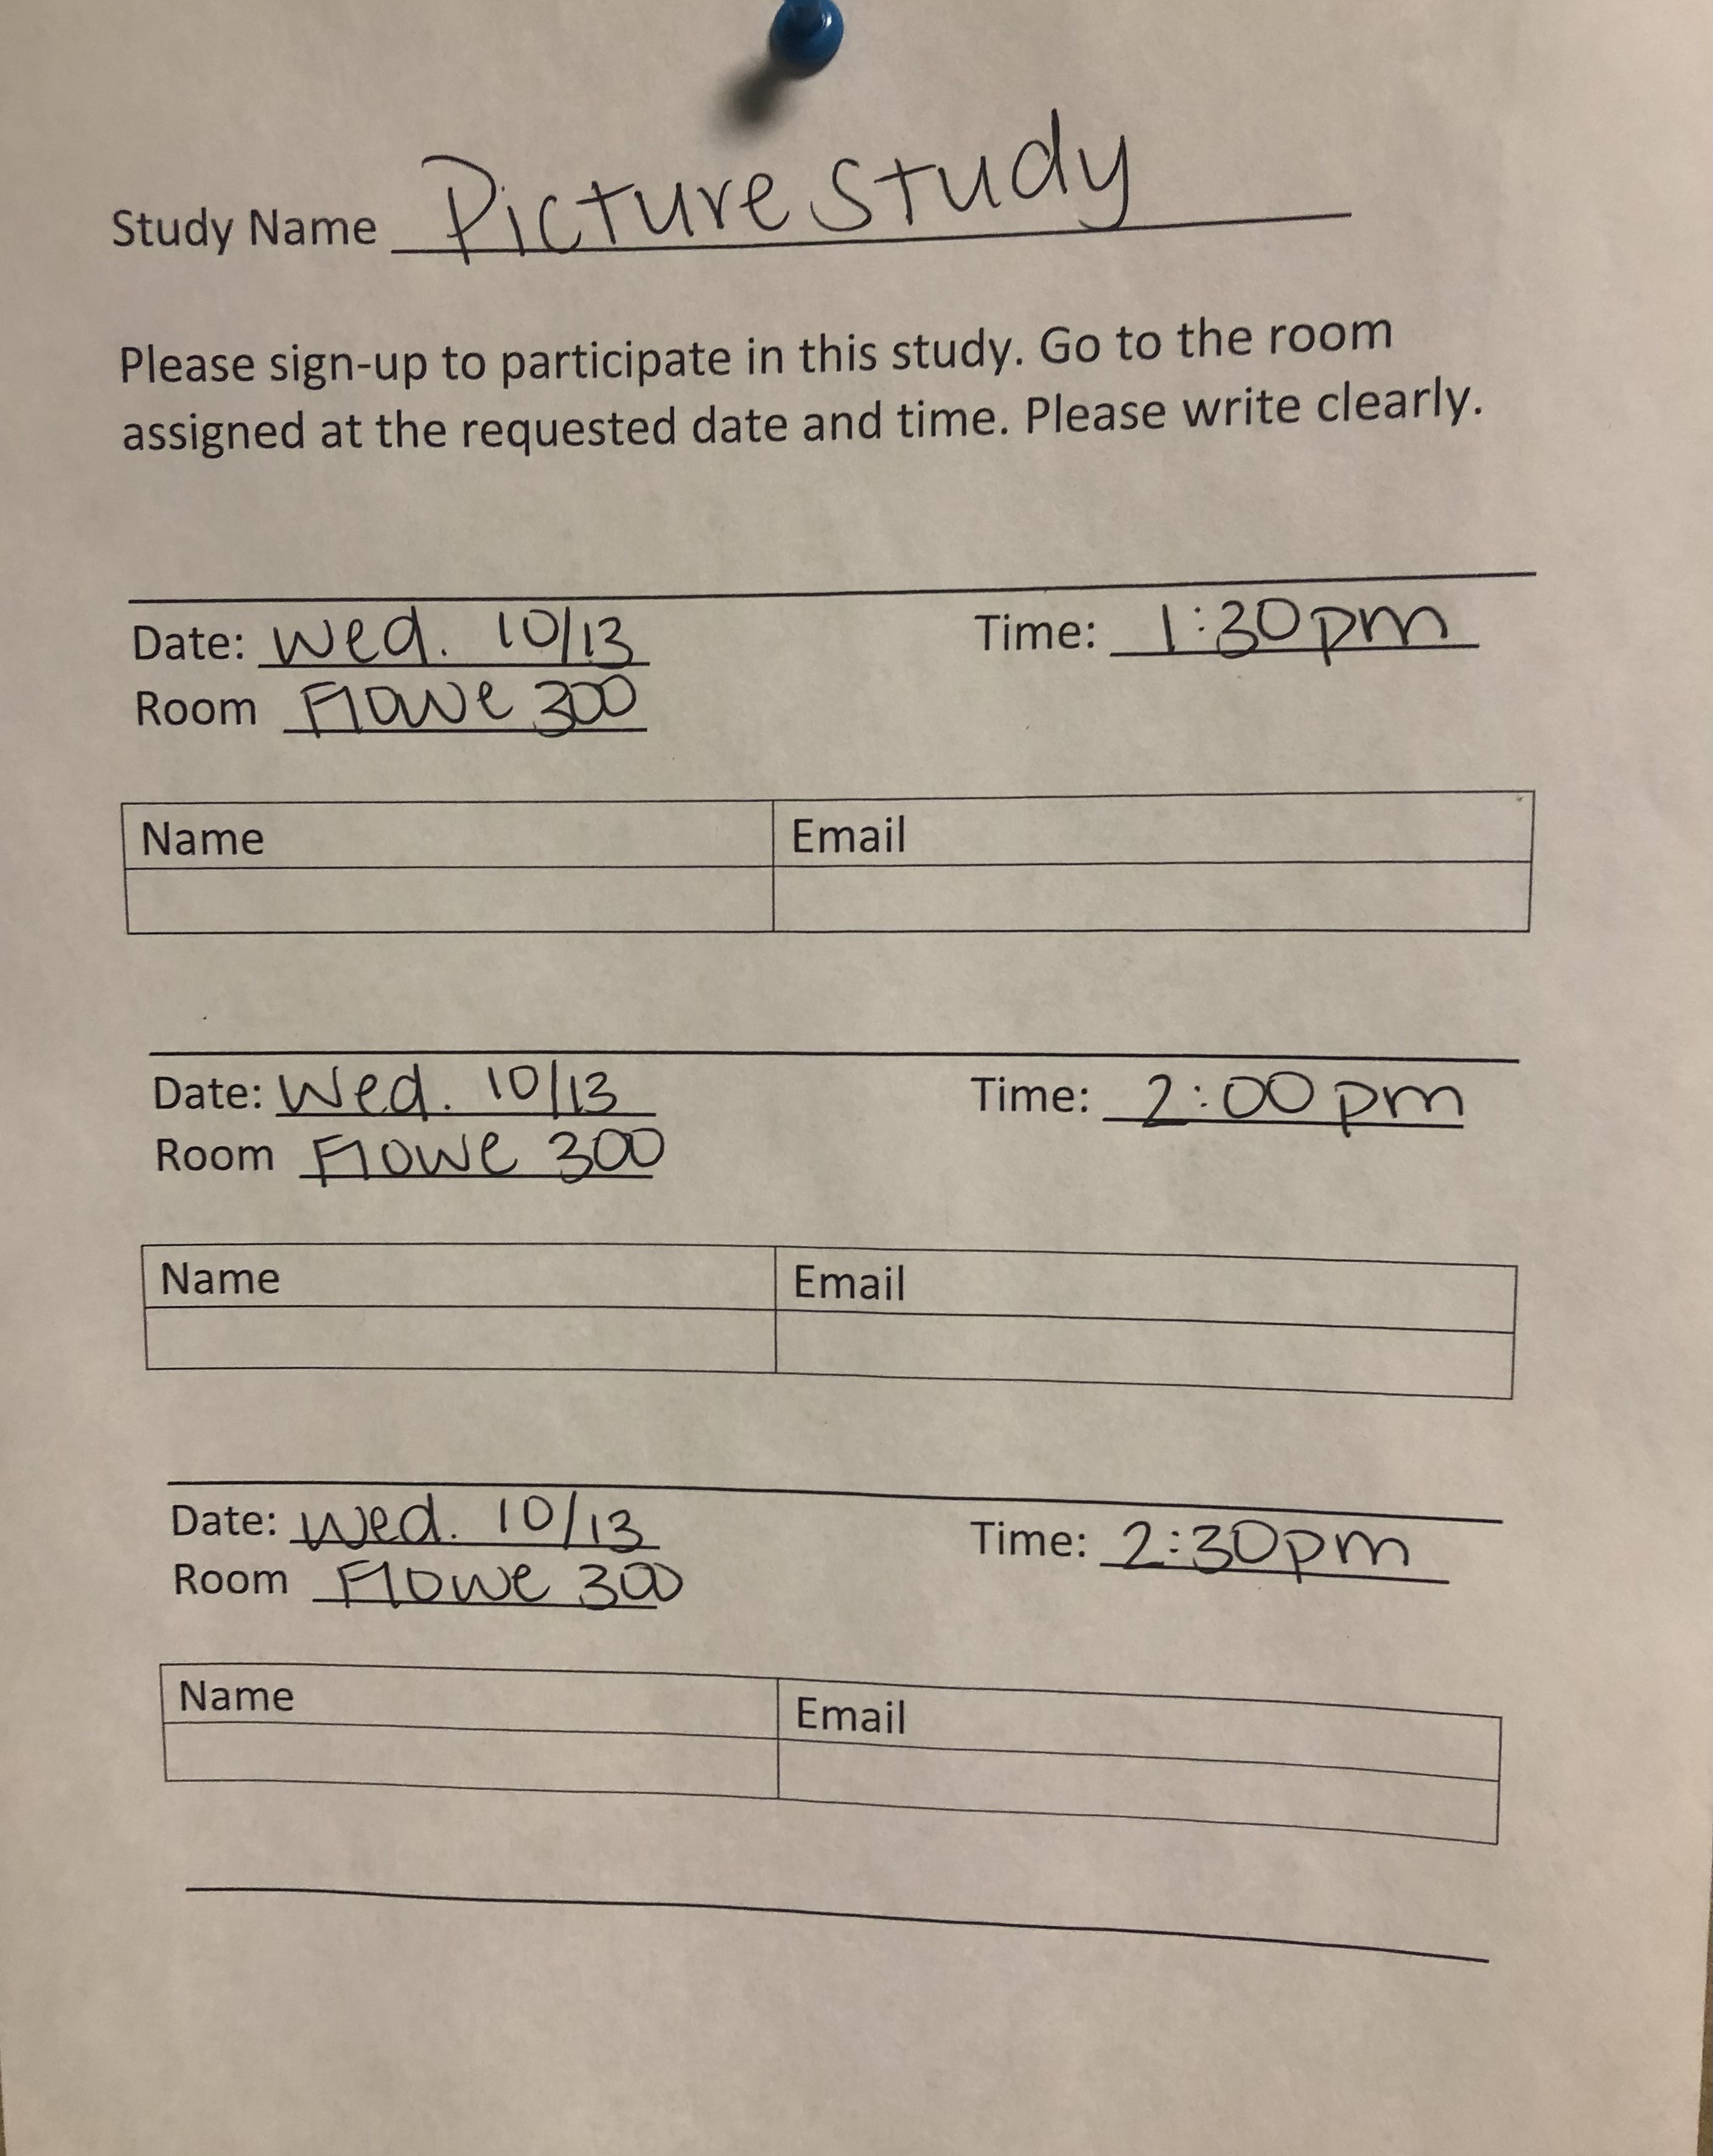 Study Name Picture Study
Please sign-up to participate in this study. Go to the room
assigned at the requested date and time. Please write clearly.
Date: Wed. 10/13 Time: 1:30pm
Room Flowe 300
Name Email
Date: Wed. 10/13 Time: 2:00pm
Room Flowe 300
Name Email
Date: Wed. 10/13 Time: 2:30pm
Room Flowe 300
Name Email